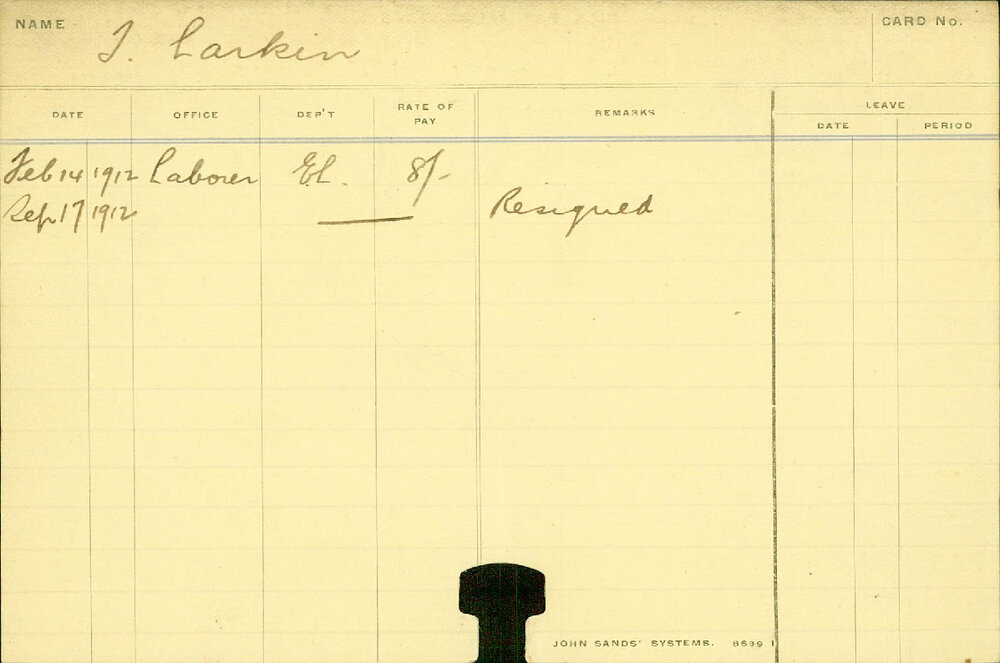 NAME T. Larkin CARD No.
DATE OFFICE DEP'T RATE OF PAY REMARKS LEAVE
DATE PERIOD
Feb 14 1912 Laborer El. 8/-
Sep 17 1912 Resigned
JOHN SANDS' SYSTEMS.